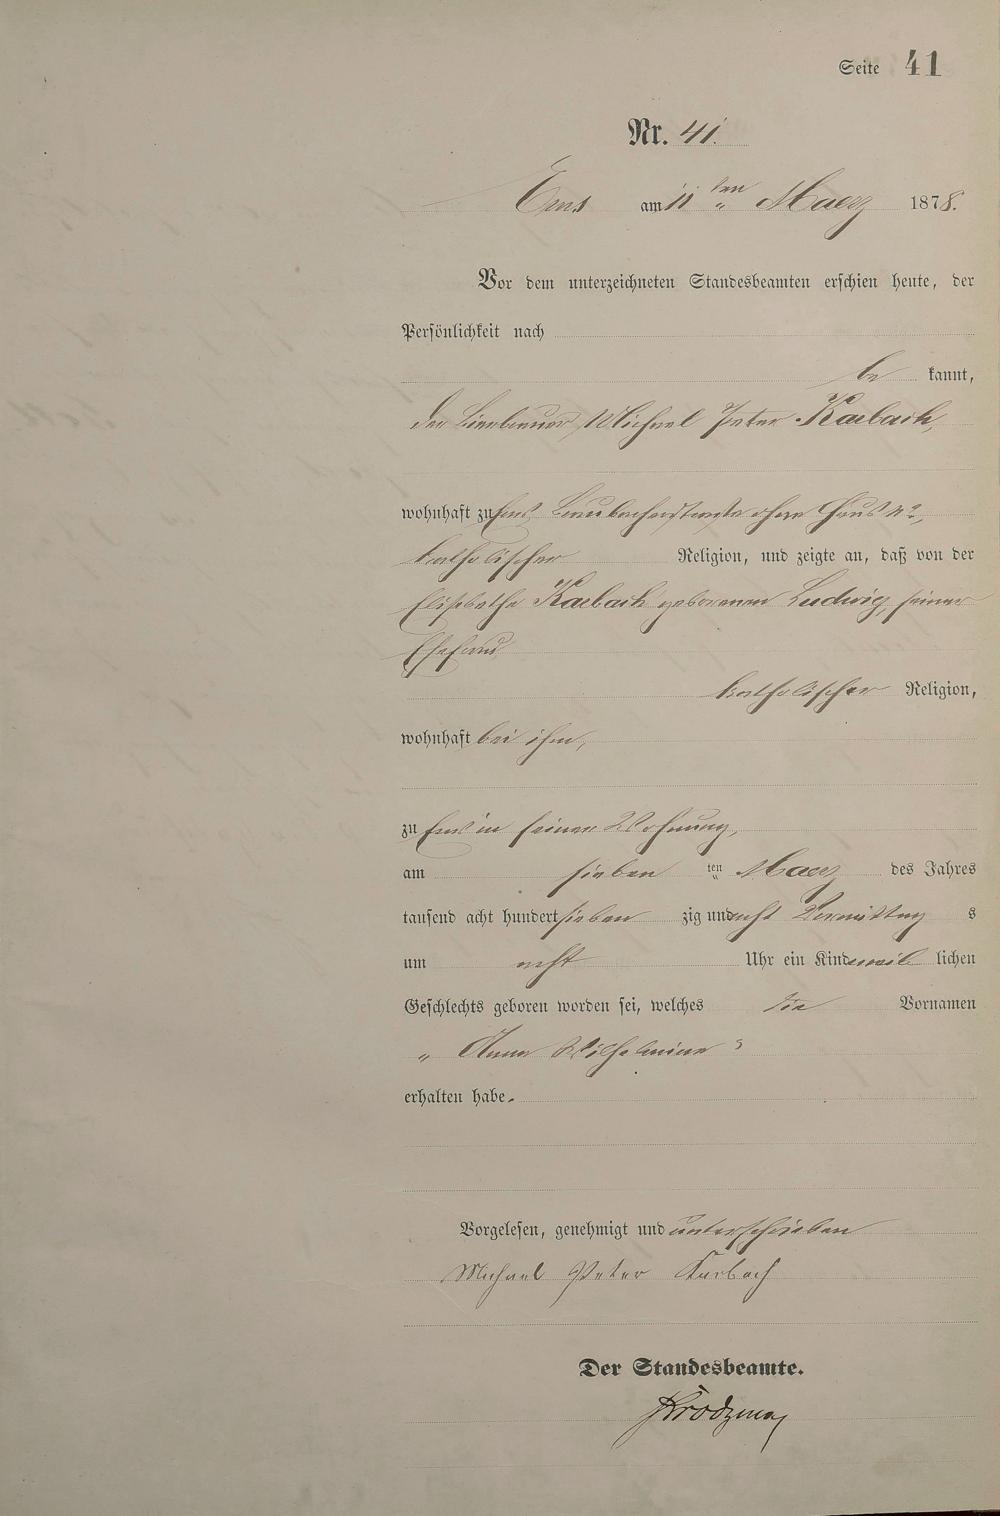 Seite 41
Nr. 41.
Ems am 11ten Maerz 1878.
Vor dem unterzeichneten Standesbeamten erschien heute, der
Persönlichkeit nach
be kannt,
der Bierbrauer Michael Peter Karbach,
wohnhaft zu Ems, ohne Haus No,
katholischer Religion, und zeigte an, daß von der
Elisabetha Karbach geborenen Ludwig, seiner
Ehefrau
katholischer Religion,
wohnhaft bei ihm,
zu Ems in seiner Wohnung,
am sieben ten Maerz des Jahres
tausend acht hundert sieben zig und acht Vormittag s
um acht Uhr ein Kind weib lichen
Geschlechts geboren worden sei, welches die Vornamen
„ Anna Wilhelmine "
erhalten habe.
Vorgelesen, genehmigt und unterschrieben
Michael Peter Karbach
Der Standesbeamte.